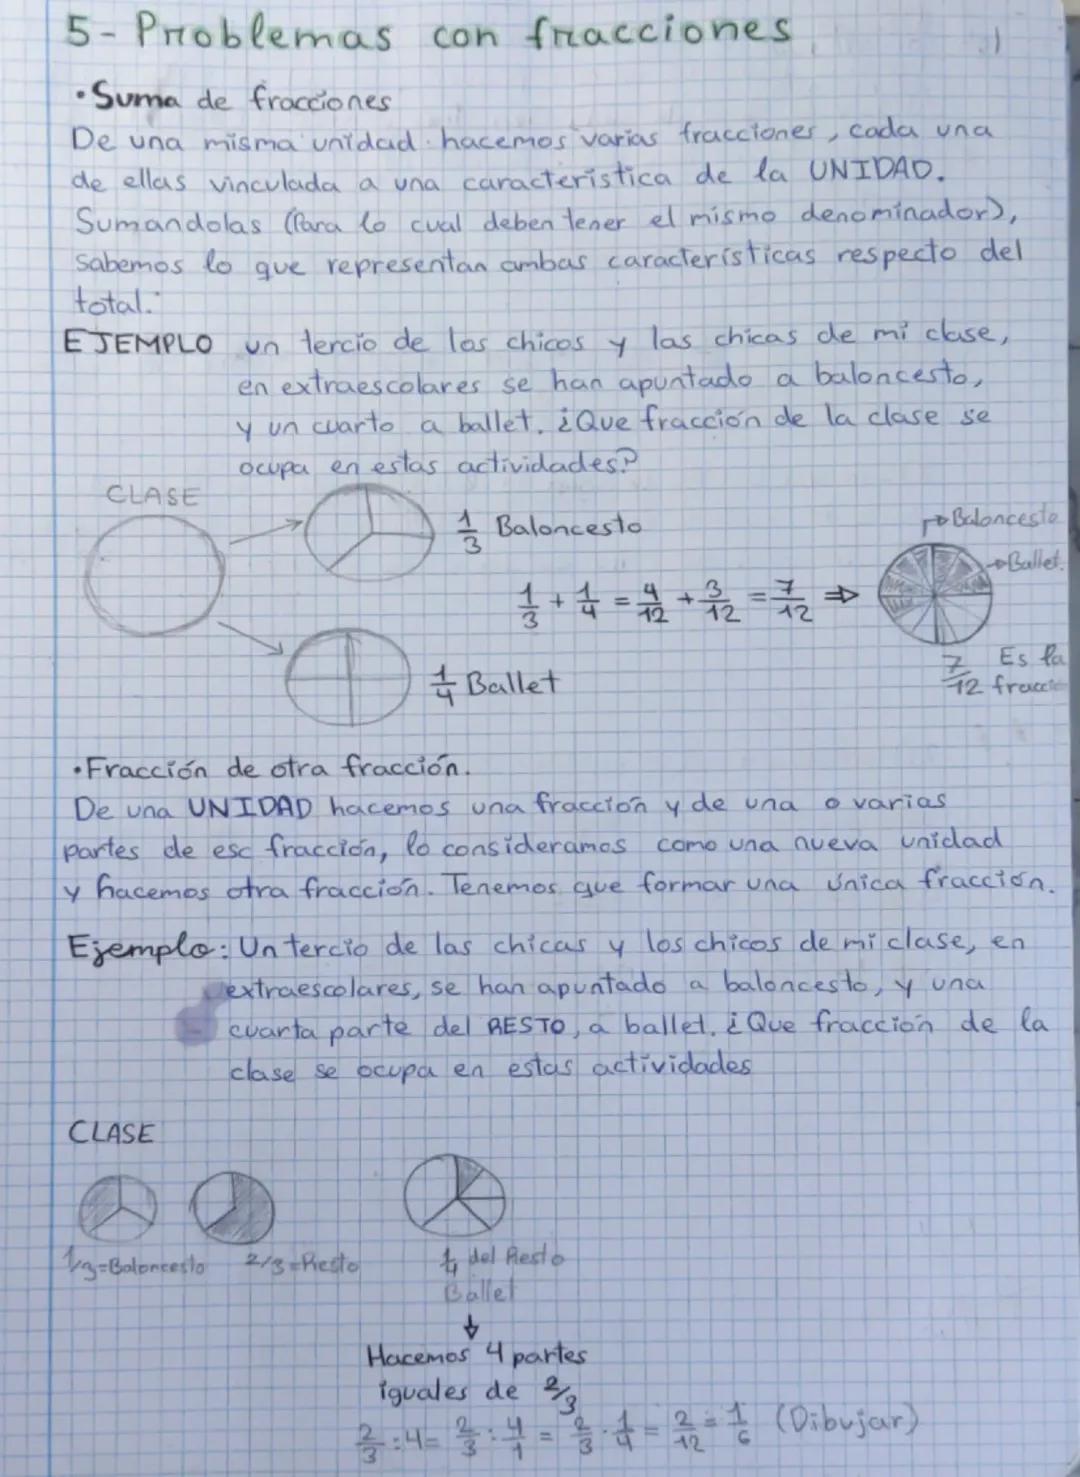 5- Problemas con fracciones
1
• Suma de fracciones
De una misma unidad hacemos varias fracciones, cada una
de ellas vinculada a una característica de la UNIDAD.
Sumandolas (Para lo cual deben tener el mismo denominador),
Sabemos lo que representan ambas características respecto del
total.
EJEMPLO un tercio de los chicos y las chicas de mi clase,
en extraescolares se han apuntado a baloncesto,
y un cuarto a ballet. ¿Que fracción de la clase se
ocupa en estas actividades?
CLASE
1/3 Baloncesto
→ Baloncesto
→ Ballet.
1/3 + 1/4 = 4/12 + 3/12 = 7/12 ⇒
1/4 Ballet
7/12 Es la
fracció
• Fracción de otra fracción.
De una UNIDAD hacemos una fracción y de una o varias
partes de esc fracción, lo consideramos como una nueva unidad
y hacemos otra fracción. Tenemos que formar una única fracción.
Ejemplo: Un tercio de las chicas y los chicos de mi clase, en
extraescolares, se han apuntado a baloncesto, y una
cuarta parte del RESTO, a ballet. ¿Que fracción de la
clase se ocupa en estas actividades
CLASE
1/3=Baloncesto
2/3=Resto
1/4 del Resto
Ballet
↓
Hacemos 4 partes
iguales de 2/3
2/3 : 4 = 2/3 : 4/1 = 2/3 · 1/4 = 2/12 = 1/6 (Dibujar)